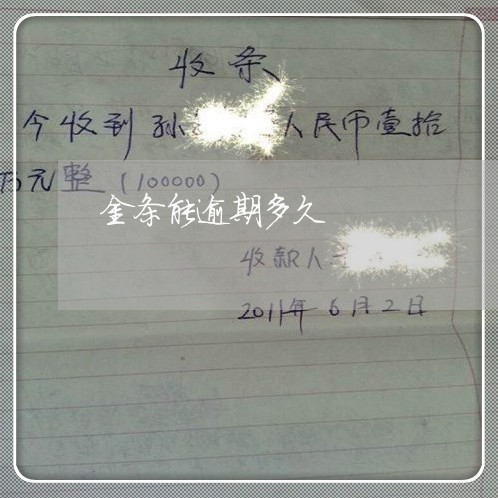 收条
今收到孙 人民币壹拾
万元整（100000）
金条能逾期多久
收款人
2011年6月2日